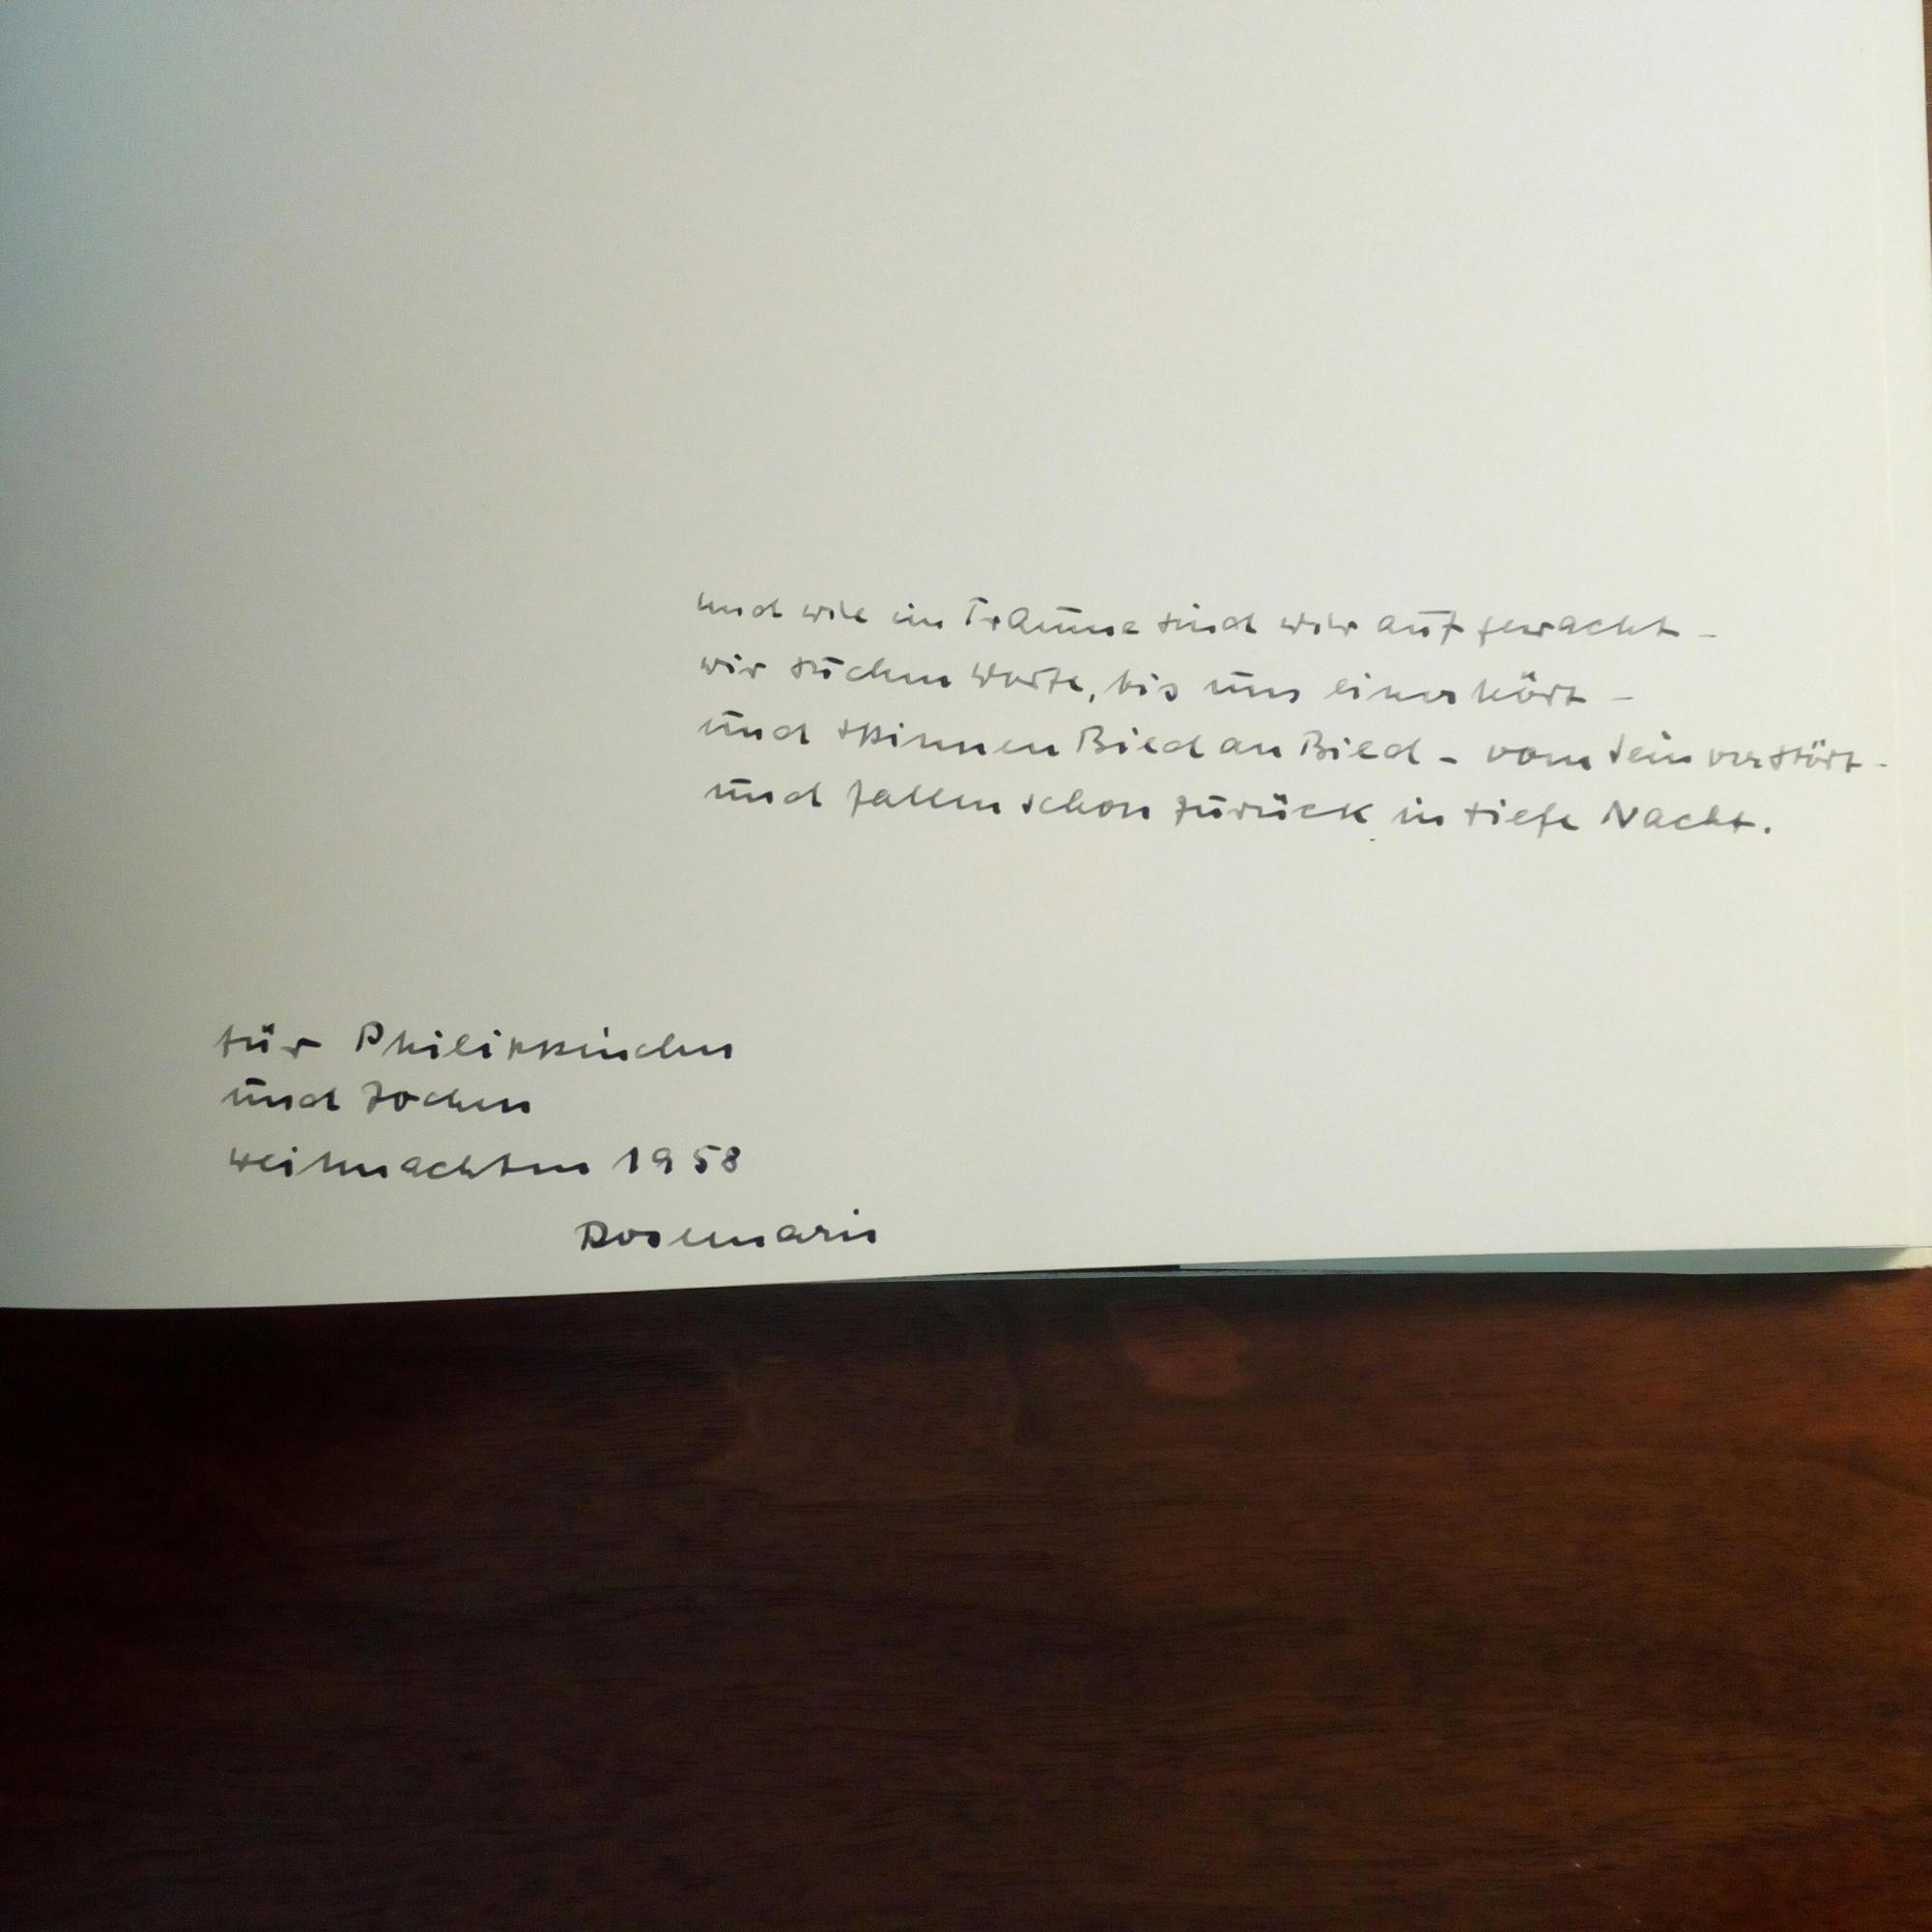 und wie im Traume sind wir aufgewacht –
wir suchen Worte, bis uns einer hört –
und spinnen Bild an Bild – vom Sein verstört –
und fallen schon zurück in tiefe Nacht.
für Philippinchen
und Jochen
weihnachten 1958
Rosemarie